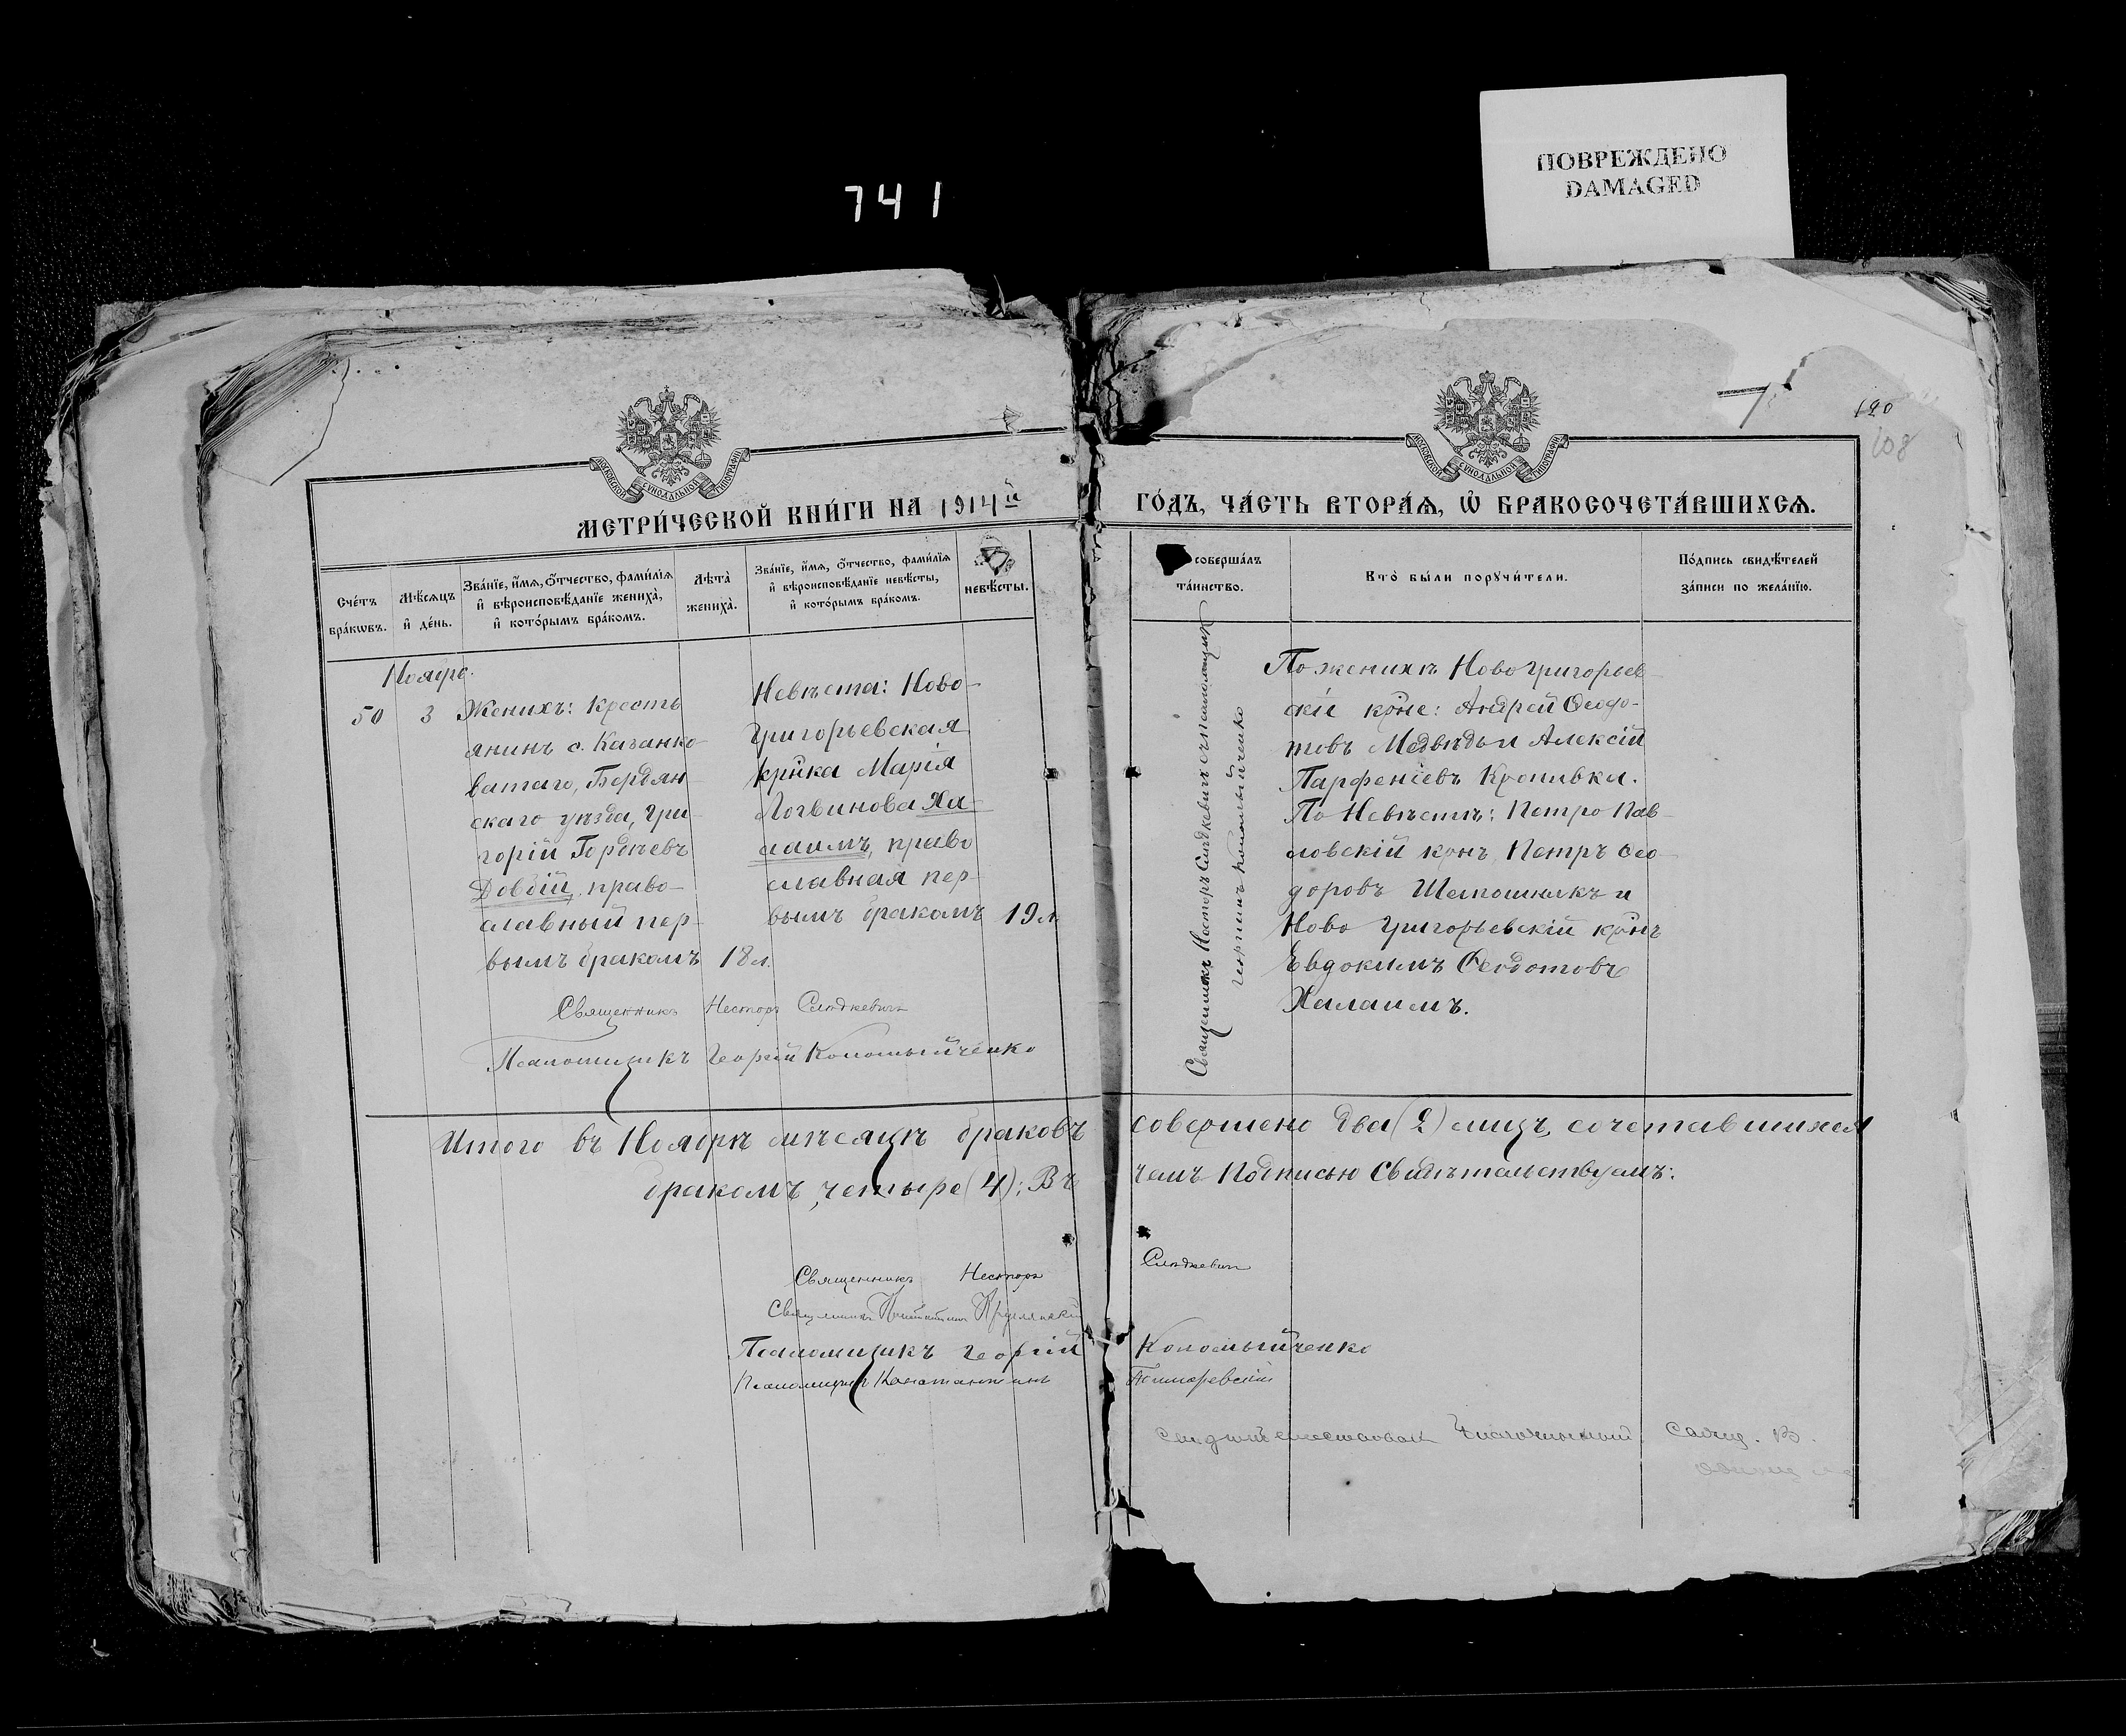 741
ПОВРЕЖДЕНО
DAMAGED
120
108
МЕТРИ́ЧЕСКОЙ КНИ́ГИ НА 1914й
ГО́ДЪ, ЧА́СТЬ ВТОРА́Я, Ѡ БРАКОСОЧЕТА́ВШИХСЯ.
МОСКОВСКОЙ СѴНОДАЛЬНОЙ ТИПОГРАФІИ
МОСКОВСКОЙ СѴНОДАЛЬНОЙ ТИПОГРАФІИ
Сче́тъ
бра́кѡвъ.
Мѣ́сяцъ
и҆ де́нь.
Зва́нїе, и҆́мя, ѻ҆́тчество, фами́лїя
и҆ вѣроисповѣ́данїе жениха̀,
и҆ кото́рымъ бра́комъ.
Лѣ́та̀
жениха̀.
Зва́нїе, и҆́мя, ѻ҆́тчество, фами́лїя
и҆ вѣроисповѣ́данїе невѣ́сты,
и҆ кото́рымъ бра́комъ.
невѣ́сты.
соверша́лъ
та́инство.
Кто̀ бы́ли порꙋчи́тели.
По́дпись свидѣ́телей
за́писи по жела́нїю.
Ноябрь.
50
3
Женихъ: Кресть
янинъ с. Качанко
ватаго, Бердян
скаго уѣзда, Гри
горій Гордѣевъ
Довбій, право-
славный пер-
вымъ бракомъ
18 л.
Невѣста: Ново-
Григорьевская
крѣ́нка Марія
Логвинова Ха-
лаимъ, право
славная пер-
вымъ бракомъ
19 л.
Священникъ Несторъ Слѣдкевичъ съ псаломщик
Георгіемъ Коломыйченко
По женихѣ Ново Григорьев-
скіе кр̃не: Андрей Ѳеодо-
товъ Медвѣдь и Алексій
Парфеніевъ Кропивка.
По Невѣстѣ: Петро Пав-
ловскій крнъ Петръ Ѳео-
доровъ Шапошникъ и
Ново Григорьевскій кр̃нъ
Евдокимъ Ѳеодотовъ
Халаимъ.
Священникъ Несторъ Слѣдкевичъ
Псаломщикъ Георгій Коломыйченко
Итого въ Ноябрѣ мѣсяцѣ браковъ совершено два (2) лицъ, сочетавшихся
бракомъ, четыре (4); Въ чемъ Подписью Свидѣтельствуемъ:
Священникъ Несторъ Слѣдкевичъ
Священникъ
Псаломщикъ Георгій Коломыйченко
Псаломщикъ Константинъ
Благочинный Свящ. В.